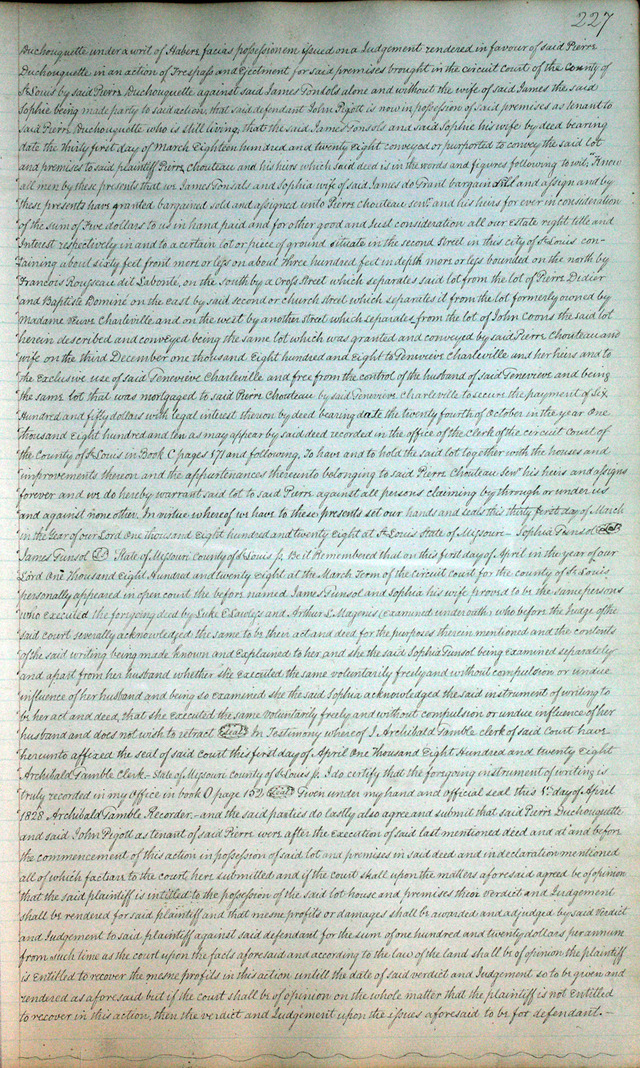 227
Duchouquette under a writ of Habere facias possessionem issued on a Judgement rendered in favour of said Pierre
Duchouquette in an action of Trespass and Ejectment for said premises brought in the circuit court of the County of
St Louis by said Pierre Duchouquette against said James Tonsols alone and without the wife of said James the said
Sophie being made party to said action, that said defendant John Pigott is now in possession of said premises as tenant to
said Pierre Duchouquette who is still living, that the said James Tonsols and said Sophie his wife by deed bearing
date the thirty first day of March Eighteen hundred and twenty Eight conveyed or purported to convey the said lot
and premises to said plaintiff Pierre Chouteau and his heirs which said deed is in the words and figures following to wit, Know
all men by these presents that we James Tonsals and Sophia wife of said James do Grant bargain and assign and by
these presents have granted bargained sold and assigned unto Pierre Chouteau senr. and his heirs for ever in consideration
of the sum of Five dollars to us in hand paid and for other good and consideration all our Estate right title and
Interest respectively in and to a certain lot or piece of ground situate in the second Street in this city of St Louis con-
taining about sixty feet front more or less on about three hundred feet in depth more or less bounded on the north by
Francois Rousseau dit Labonté, on the South by a Cross Street which separates said lot from the lot of Pierre Didier
and Baptiste Domine on the east by said second or church street which separates it from the lot formerly owned by
Madame Veuve Charleville and on the west by another Street which separates from the lot of John Coons the said lot
herein described and conveyed being the same lot which was granted and conveyed by said Pierre Chouteau and
wife on the third December one thousand Eight hundred and Eight to Genevieve Charleville and her heirs and to
the Exclusive use of said Genevieve Charleville and free from the control of the husband of said Genevieve and being
the same lot that was mortgaged to said Pierre Chouteau by said Genevieve Charleville to secure the payment of Six
Hundred and fifty dollars with legal interest thereon by deed bearing date the twenty fourth of October in the year One
thousand Eight hundred and ten as may appear by said deed recorded in the office of the Clerk of the circuit Court of
the County of St Louis in Book C pages 171 and following, To have and to hold the said lot together with the houses and
improvements thereon and the appurtenances thereunto belonging to said Pierre Chouteau Senr his heirs and assigns
forever and we do hereby warrant said lot to said Pierre against all persons claiming by through or under us
and against none other. In virtue whereof we have to these presents set our hands and seals this thirty first day of March
in the Year of our Lord One thousand Eight hundred and twenty Eight at St Louis State of Missouri – Sophia Tunsol Seal
James Tunsol State of Missouri County of St Louis Be it Remembered that on this first day of April in the year of our
Lord One Thousand Eight Hundred and twenty Eight at the March Term of the circuit court for the county of St Louis
personally appeared in open court the before named James Tunsol and Sophia his wife proved to be the same persons
who executed the foregoing deed by Luke E Lawless and Arthur L Magenis (examined under oath) who before the Judge of the
said court severally acknowledged the same to be their act and deed for the purposes therein mentioned and the contents
of the said writing being made known and Explained to her and she the said Sophia Tunsol being examined separately
and apart from her husband whether she executed the same voluntarily freely and without compulsion or undue
influence of her husband and being so examined she the said Sophia acknowledged the said instrument of writing to
be her act and deed, that she executed the same voluntarily freely and without compulsion or undue influence of her
husband and does not wish to retract Seal In Testimony whereof I Archibald Gamble clerk of said Court have
hereunto affixed the seal of said Court this first day of April One Thousand Eight Hundred and twenty Eight
Archibald Gamble Clerk – State of Missouri County of St Louis I do certify that the foregoing instrument of writing is
truly recorded in my Office in book O page 152 Seal Given under my hand and official seal this 1st day of April
1828. Archibald Gamble Recorder. – and the said parties do lastly also agree and submit that said Pierre Duchouquette
and said John Pigott as tenant of said Pierre were after the Execution of said last mentioned deed and at and before
the commencement of this action in possession of said lot and premises in said deed and in declaration mentioned
all of which facts are to the court here submitted and if the court shall upon the matters aforesaid agreed be of opinion
that the said plaintiff is intitled to the possession of the said lot house and premises their verdict and Judgement
shall be rendered for said plaintiff and that mesne profits or damages shall be awarded and adjudged by said Verdict
and Judgement to said plaintiff against said defendant for the sum of one hundred and twenty dollars per annum
from such time as the court upon the facts aforesaid and according to the law of the land shall be of opinion the plaintiff
is Entitled to recover the mesne profits in this action untill the date of said verdict and Judgement so to be given and
rendered as aforesaid but if the court shall be of opinion on the whole matter that the plaintiff is not Entitled
to recover in this action, then the verdict and Judgement upon the issues aforesaid to be for defendant. –